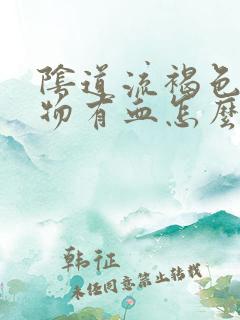 陰道流褐色
物有血怎麼
韩征
未经同意禁止转载